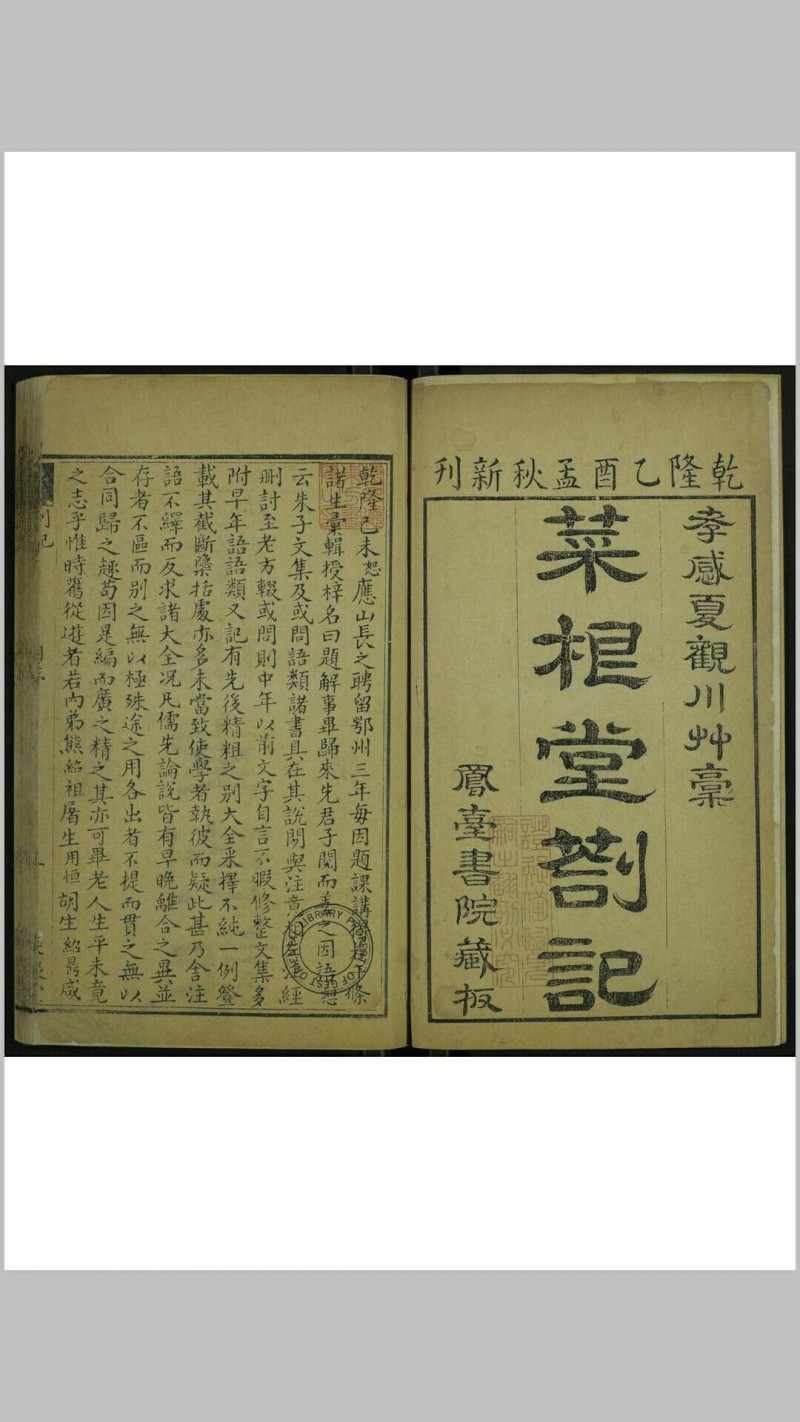 乾隆乙酉孟秋新刊
孝感夏觀川艸稾
菜根堂劄記
鳳臺書院藏板
乾隆己未恕應山長之聘留鄂州三年每因題課講條
諸生彙輯授梓名曰題解事畢歸來先君子閱而善之因語恕
云朱子文集及或問語類諸書具在其說閒與注經
刪討至老方輟或問則中年以前文字自言不暇修整文集多
附早年語語類又記有先後精粗之別大全采擇不純一例登
載其截斷櫽括處亦多未當致使學者執彼而疑此甚乃舍注
語不繹而反求諸大全况凡儒先論說皆有早晚離合之異並
存者不區而別之無以極殊途之用各出者不提而貫之無以
合同歸之趣苟因是編而廣之精之其亦可畢老人生平未竟
之志乎惟時舊從遊者若內弟熊紹祖屠生用恒胡生紹鼎咸
劄記
LIBRARY